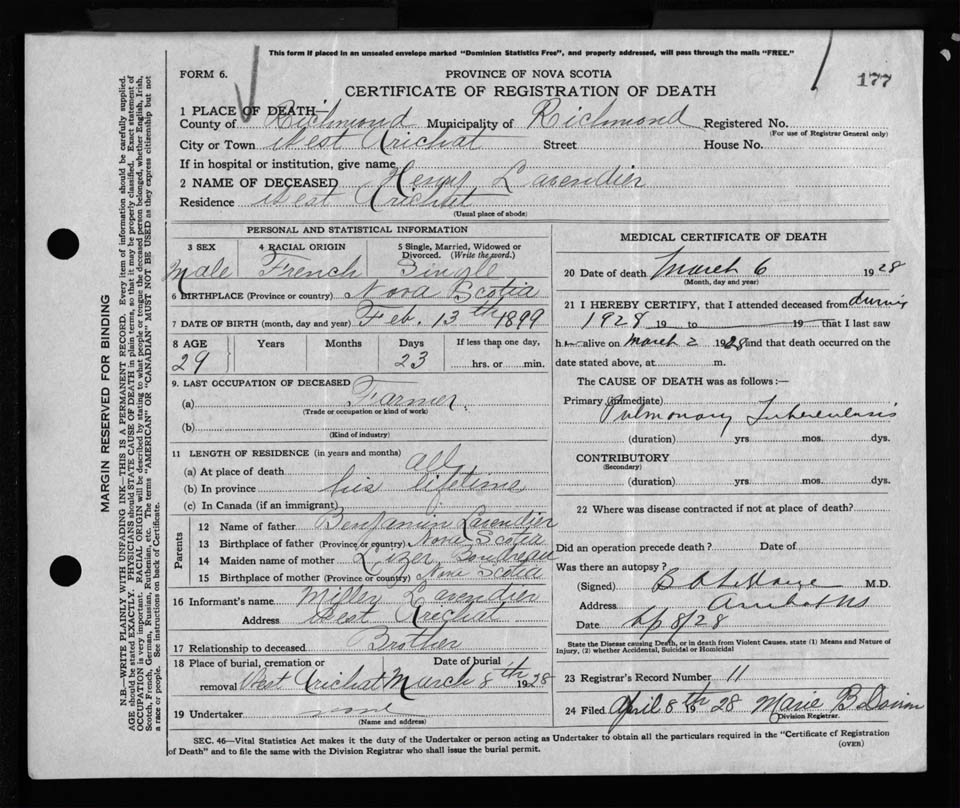 This form if placed in an unsealed envelope marked "Dominion Statistics Free", and properly addressed, will pass through the mails "FREE."
177
FORM 6.
PROVINCE OF NOVA SCOTIA
CERTIFICATE OF REGISTRATION OF DEATH
1 PLACE OF DEATH:
County of Richmond Municipality of Richmond Registered No.
(For use of Registrar General only)
City or Town West Arichat Street House No.
If in hospital or institution, give name
2 NAME OF DECEASED Henry Lavendier
Residence West Arichat
(Usual place of abode)
PERSONAL AND STATISTICAL INFORMATION
3 SEX 4 RACIAL ORIGIN 5 Single, Married, Widowed or Divorced. (Write the word.)
Male French Single
6 BIRTHPLACE (Province or country) Nova Scotia
7 DATE OF BIRTH (month, day and year) Feb. 13th 1899
8 AGE Years Months Days If less than one day,
29 23 hrs. or min.
9. LAST OCCUPATION OF DECEASED
(a) Farmer
(Trade or occupation or kind of work)
(b)
(Kind of industry)
11 LENGTH OF RESIDENCE (in years and months)
(a) At place of death all
(b) In province his lifetime
(c) In Canada (if an immigrant)
Parents
12 Name of father Benjamin Lavendier
13 Birthplace of father (Province or country) Nova Scotia
14 Maiden name of mother Boudreau
15 Birthplace of mother (Province or country) Nova Scotia
16 Informant's name Lavendier
Address West Arichat
17 Relationship to deceased Brother
18 Place of burial, cremation or removal Date of burial
West Arichat March 8th 1928
19 Undertaker none
(Name and address)
MEDICAL CERTIFICATE OF DEATH
20 Date of death March 6 1928
(Month, day and year)
21 I HEREBY CERTIFY, that I attended deceased from during
1928 19 to 19 that I last saw
h alive on March 2 1928 and that death occurred on the
date stated above, at m.
The CAUSE OF DEATH was as follows:—
Primary (Immediate)
Pulmonary Tuberculosis
(duration) yrs. mos. dys.
CONTRIBUTORY
(Secondary)
(duration) yrs. mos. dys.
22 Where was disease contracted if not at place of death?
Did an operation precede death? Date of
Was there an autopsy?
(Signed) M.D.
Address Arichat NS
Date Ap 8/28
State the Disease causing Death, or in death from Violent Causes. state (1) Means and Nature of
Injury, (2) whether Accidental, Suicidal or Homicidal
23 Registrar's Record Number 11
24 Filed April 8th 1928 Marie B
Division Registrar.
SEC. 46—Vital Statistics Act makes it the duty of the Undertaker or person acting as Undertaker to obtain all the particulars required in the "Certificate of Registration
of Death" and to file the same with the Division Registrar who shall issue the burial permit.
(OVER)
MARGIN RESERVED FOR BINDING
N.B.—WRITE PLAINLY WITH UNFADING INK—THIS IS A PERMANENT RECORD. Every item of information should be carefully supplied.
AGE should be stated EXACTLY. PHYSICIANS should STATE CAUSE OF DEATH in plain terms, so that it may be properly classified. Exact statement of
OCCUPATION is very important. RACIAL ORIGIN will be described by stating to what people or tongue the deceased person belonged, whether English, Irish,
Scotch, French, German, Russian, Ruthenian, etc. The terms "AMERICAN" OR "CANADIAN" MUST NOT BE USED as they express citizenship but not
a race or people. See instructions on back of Certificate.